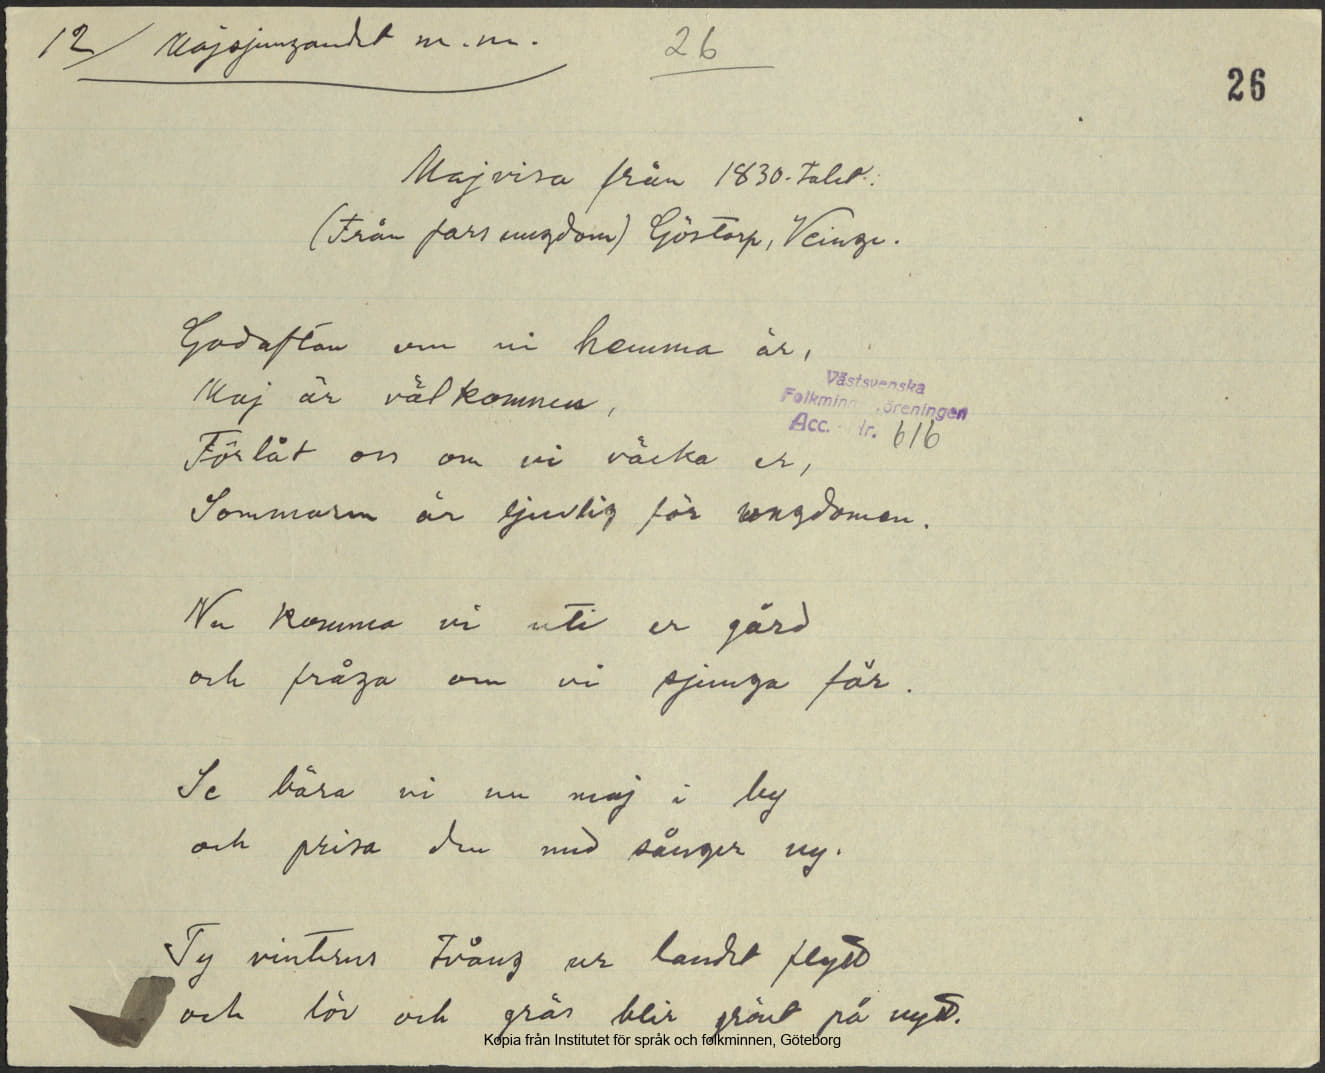 12/ Majsjungandet m.m.
26
26
Majvisa från 1830-talet.
(Från fars ungdom) Göstorp, Veinge.
Godafton om ni hemma är,
Maj är välkommen,
Förlåt oss om vi väcka er,
Sommaren är ljuvlig för ungdomen.
Västsvenska
Folkminnesföreningen
Acc. Nr. 616
Nu komma vi uti er gård
och fråga om vi sjunga får.
Se bära vi nu maj i by
och prisa den med sånger ny.
Ty vinterns tvång ur landet flytt
och löv och gräs blir grönt på nytt.
Kopia från Institutet för språk och folkminnen, Göteborg